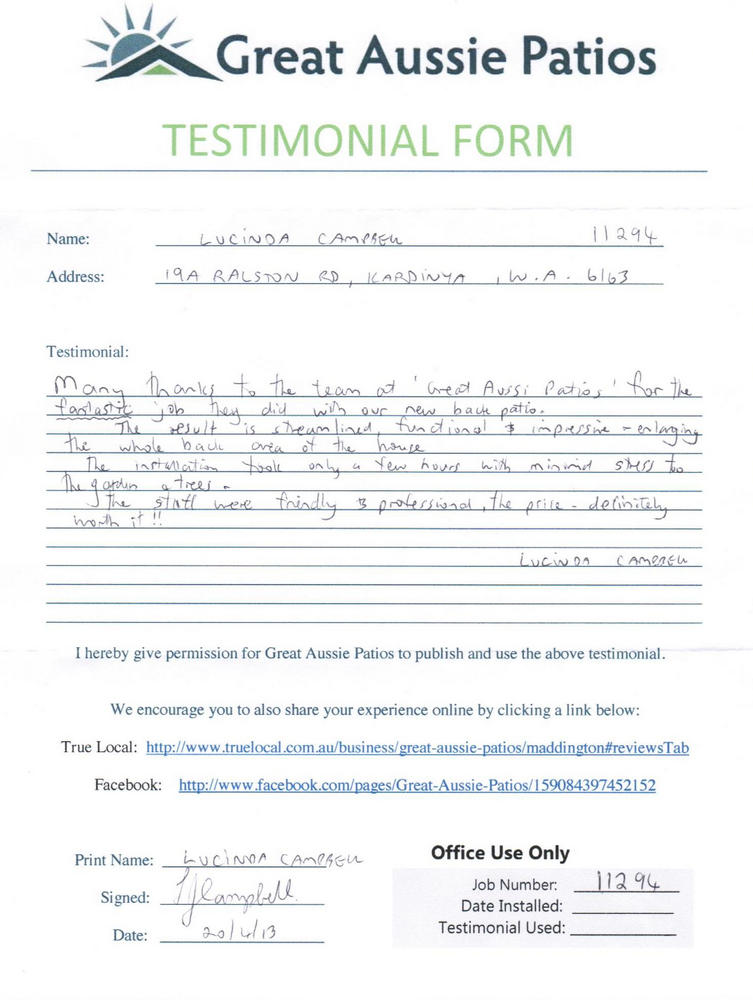 Great Aussie Patios
TESTIMONIAL FORM
Name: LUCINDA CAMPBELL 11294
Address: 19A RALSTON RD, KARDINYA, W.A. 6163
Testimonial:
Many thanks to the team at 'Great Aussi Patios' for the
fantastic job they did with our new back patio.
The result is streamlined, functional & impressive - enlarging
the whole back area of the house
The installation took only a few hours with minimal stress to
the garden & trees.
The staff were friendly & professional, the price - definitely
worth it!!
LUCINDA CAMPBELL
I hereby give permission for Great Aussie Patios to publish and use the above testimonial.
We encourage you to also share your experience online by clicking a link below:
True Local: http://www.truelocal.com.au/business/great-aussie-patios/maddington#reviewsTab
Facebook: http://www.facebook.com/pages/Great-Aussie-Patios/159084397452152
Print Name: LUCINDA CAMPBELL
Signed: LJCampbell
Date: 20/4/13
Office Use Only
Job Number: 11294
Date Installed:
Testimonial Used: